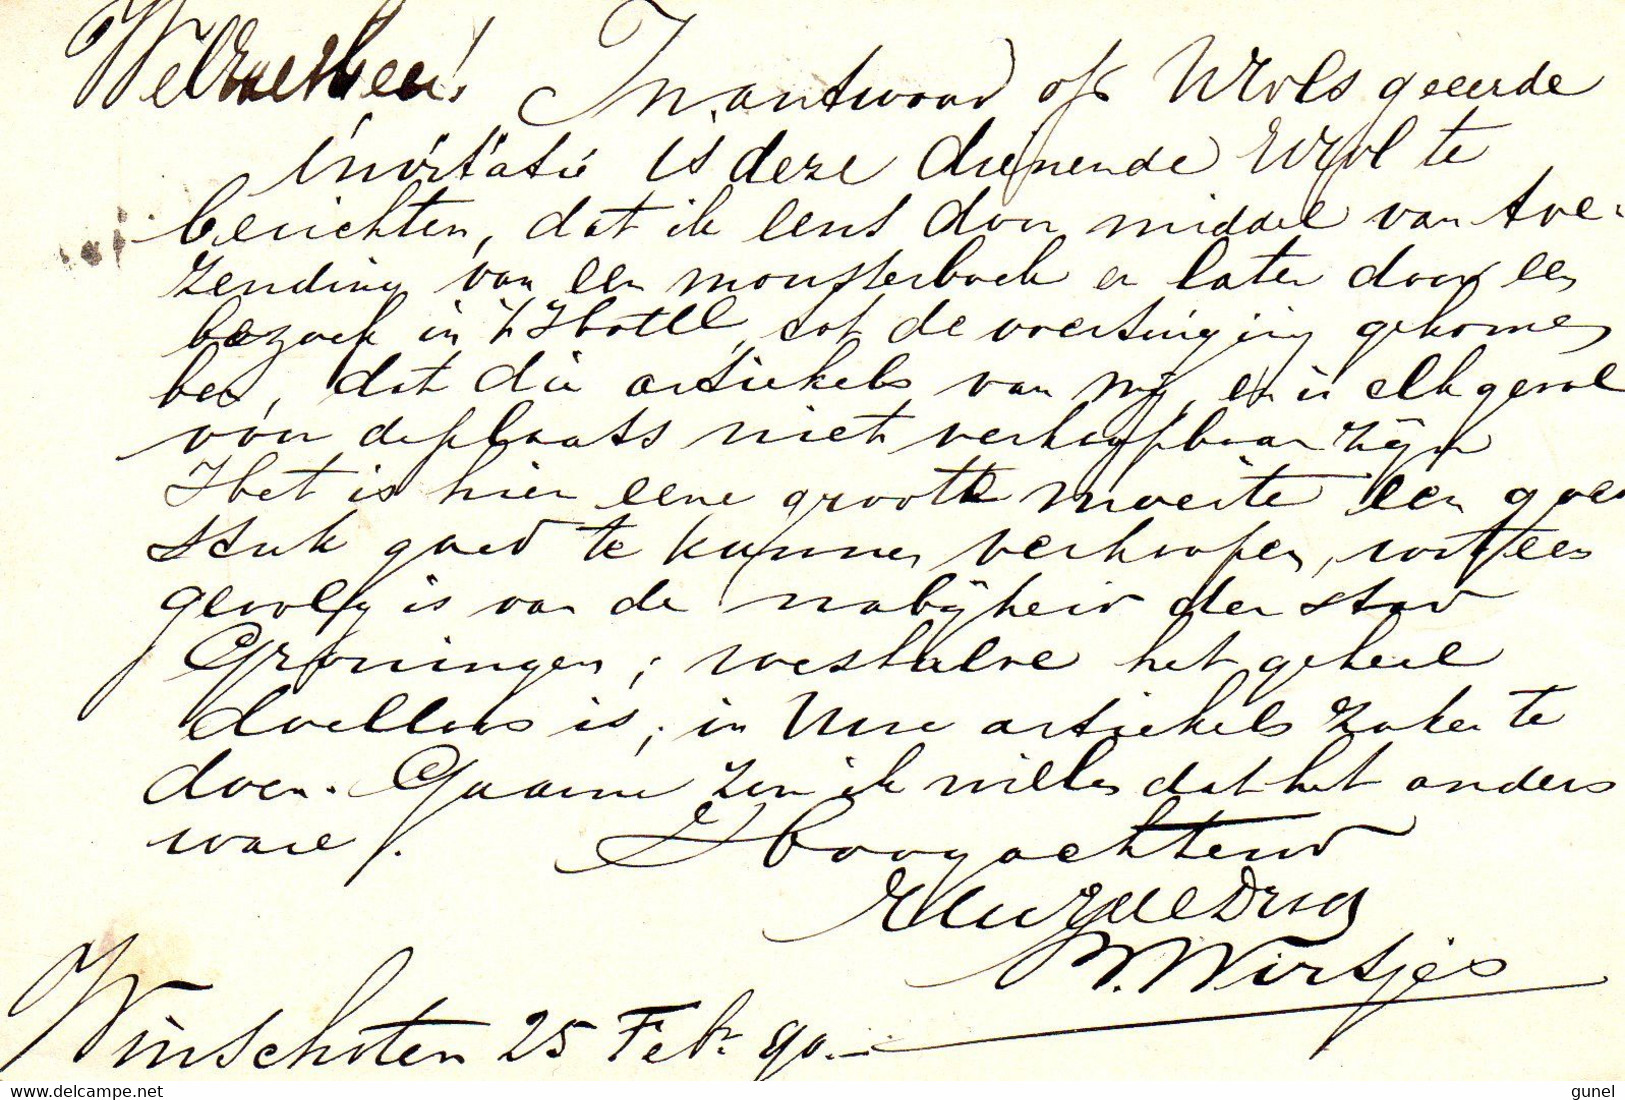 WelEdelHeer! In antwoord op UEds geeerde
invitatie is deze dienende UEd te
berichten, dat ik eens door middel van toe-
zending van een monsterboek en later door een
bezoek in 't Hotel, tot de overtuiging gekomen
ben, dat die artiekels van mij, en in elk geval
voor de plaats niet verkoopbaar zijn
Het is hier eene groote moeite een goed
stuk goed te kunnen verkoopen, wat een
gevolg is van de nabijheid der stad
Groningen; weshalve het geheel
doelloos is, in Uwe artiekels zaken te
doen. Gaarne zou ik willen dat het anders
ware.
Hoogachtend
UEd
W. Wirtjes
Winschoten 25 Febr. 90.
delcampe.net
gunel